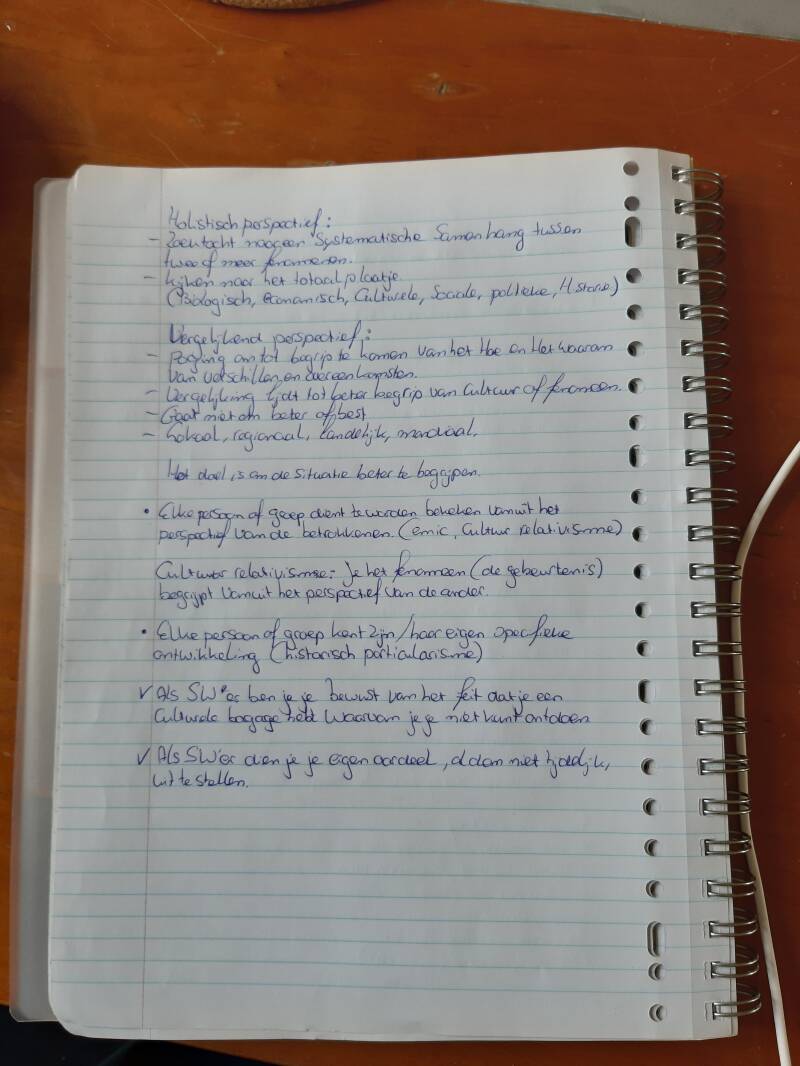 Holistisch perspectief:
- Zoektocht naar een Systematische Samenhang tussen
twee of meer fenomenen.
- kijken naar het totaal plaatje
(Biologisch, economisch, Culturele, Sociale, politieke, Historie)
Vergelijkend perspectief:
- Poging om tot begrip te komen van het Hoe en Het waarom
van verschillen en overeenkomsten.
- Vergelijking lijdt tot beter begrip van Cultuur of fenomeen.
- Gaat niet om beter of best
- Lokaal, regionaal, landelijk, mondiaal.
Het doel is om de situatie beter te begrijpen.
• Elke persoon of groep dient te worden bekeken vanuit het
perspectief van de betrokkenen. (emic, Cultuur relativisme)
Cultuur relativisme: Je het fenomeen (de gebeurtenis)
begrijpt vanuit het perspectief van de ander.
• Elke persoon of groep kent zijn/haar eigen specifieke
ontwikkeling (historisch particularisme)
✓ Als SW'er ben je je bewust van het feit dat je een
Culturele bagage hebt waarvan je je niet kunt ontdoen
✓ Als SW'er dien je je eigen oordeel, al dan niet tijdelijk,
uit te stellen.